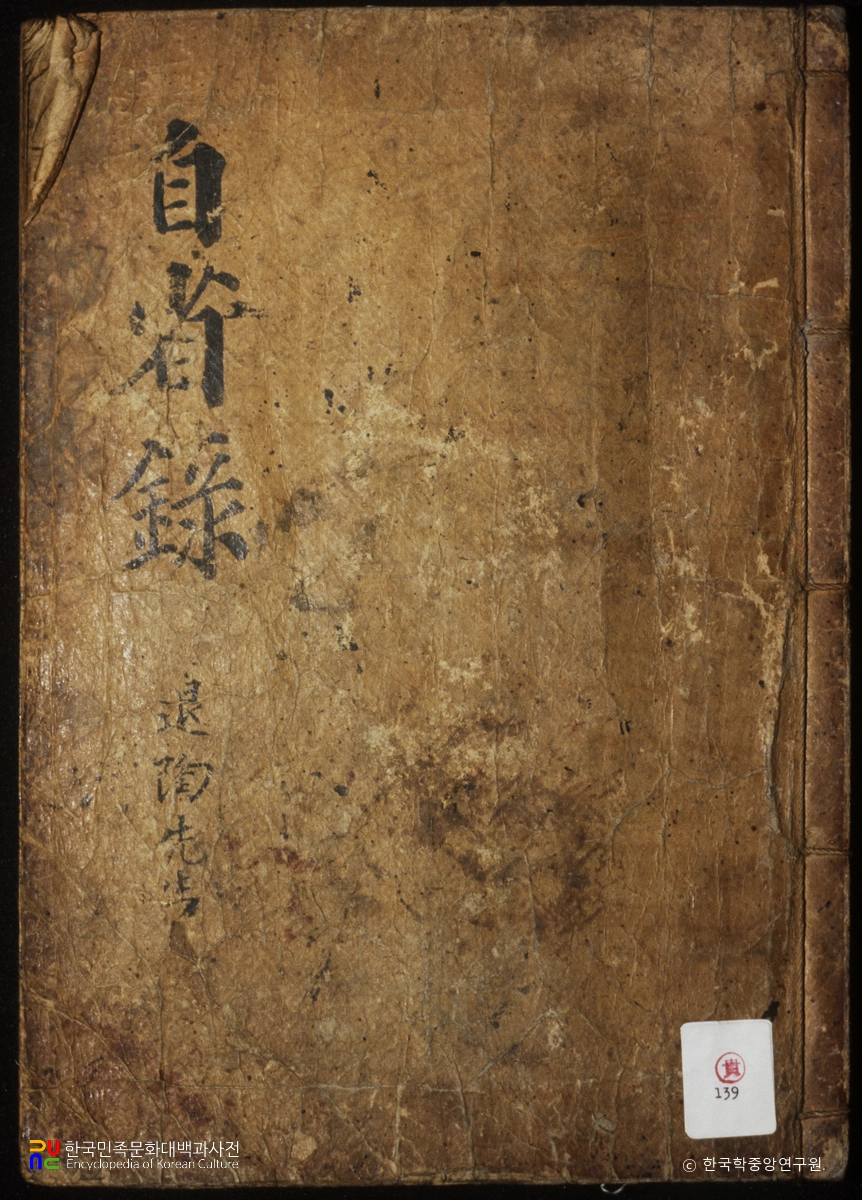 自省錄
退陶先生
貴
139
한국민족문화대백과사전
Encyclopedia of Korean Culture
ⓒ 한국학중앙연구원